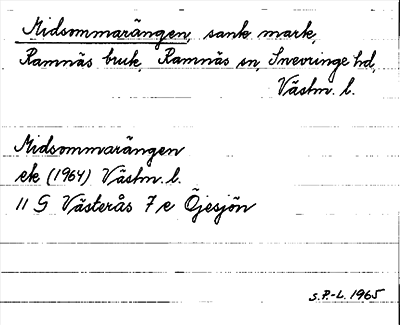 Midsommarängen, sank mark,
Ramnäs bruk, Ramnäs sn, Snevringe hd,
Västm. l.
Midsommarängen
ek (1964) Västm. l.
11 G Västerås 7 e Öjesjön
S.P.-L. 1965